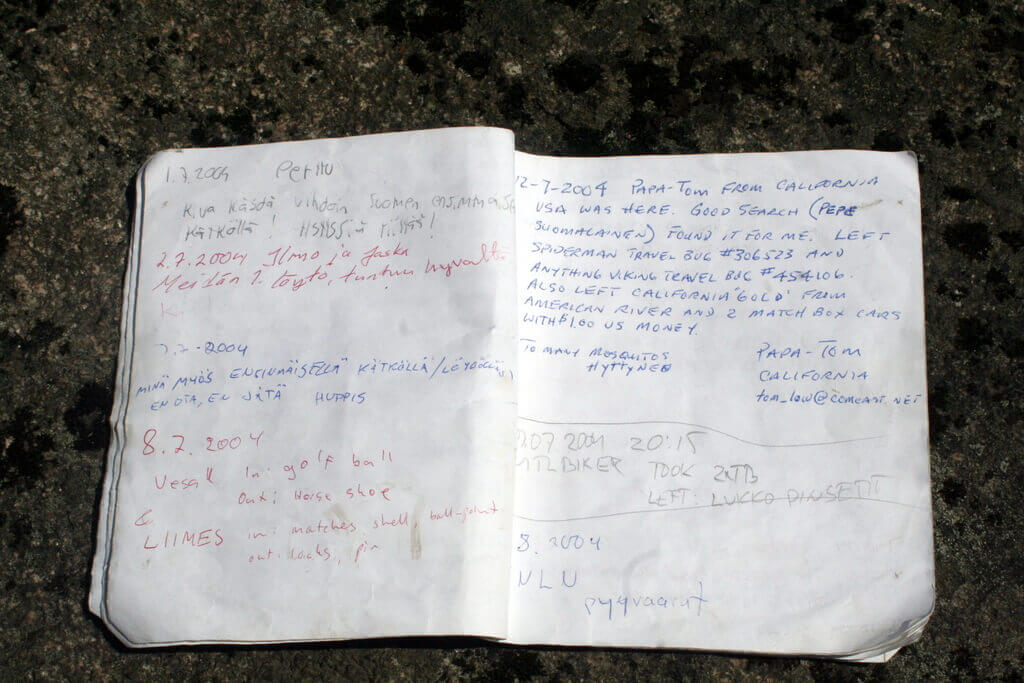 1.7.2004 Perttu
Kiva käydä vihdoin Suomen
kätköllä!
2.7.2004 Ilmo ja Jaska
Meidän 1. löytö, tuntuu hyvältä
7.7-2004
MINÄ MYÖS ENSIMMÄISELLÄ KÄTKÖLLÄ/
EN OTA, EN JÄTÄ HUPPIS
8.7.2004
Vesall In: golf ball
Out: Horse shoe
&
LIIMES in: matches, shell, ball-point
out: locks, pin
12-7-2004 PAPA-TOM FROM CALIFORNIA
USA WAS HERE. GOOD SEARCH (PEPE
SUOMALAINEN) FOUND IT FOR ME. LEFT
SPIDERMAN TRAVEL BUG #306523 AND
ANYTHING VIKING TRAVEL BUG #454106.
ALSO LEFT CALIFORNIA 'GOLD' FROM
AMERICAN RIVER AND 2 MATCH BOX CARS
WITH $1.00 US MONEY.
TO MANY MOSQUITOS
PAPA-TOM
CALIFORNIA
tom_low@comcast.net
2004 20:15
MTLBIKER TOOK 2xTB
LEFT: LUKKO PINSETIT
8.2004
NLN
pyyvaarat